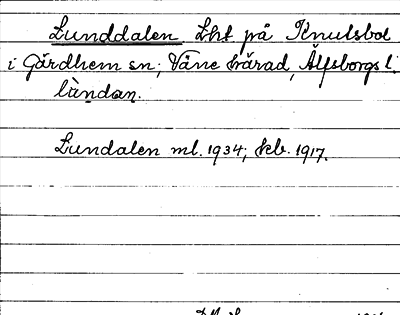 Lunddalen Lht på Knutsbol
i Gärdhem sn; Väne härad, Älfsborgs l.
làndan.
Lundalen ml. 1934; kb. 1917.